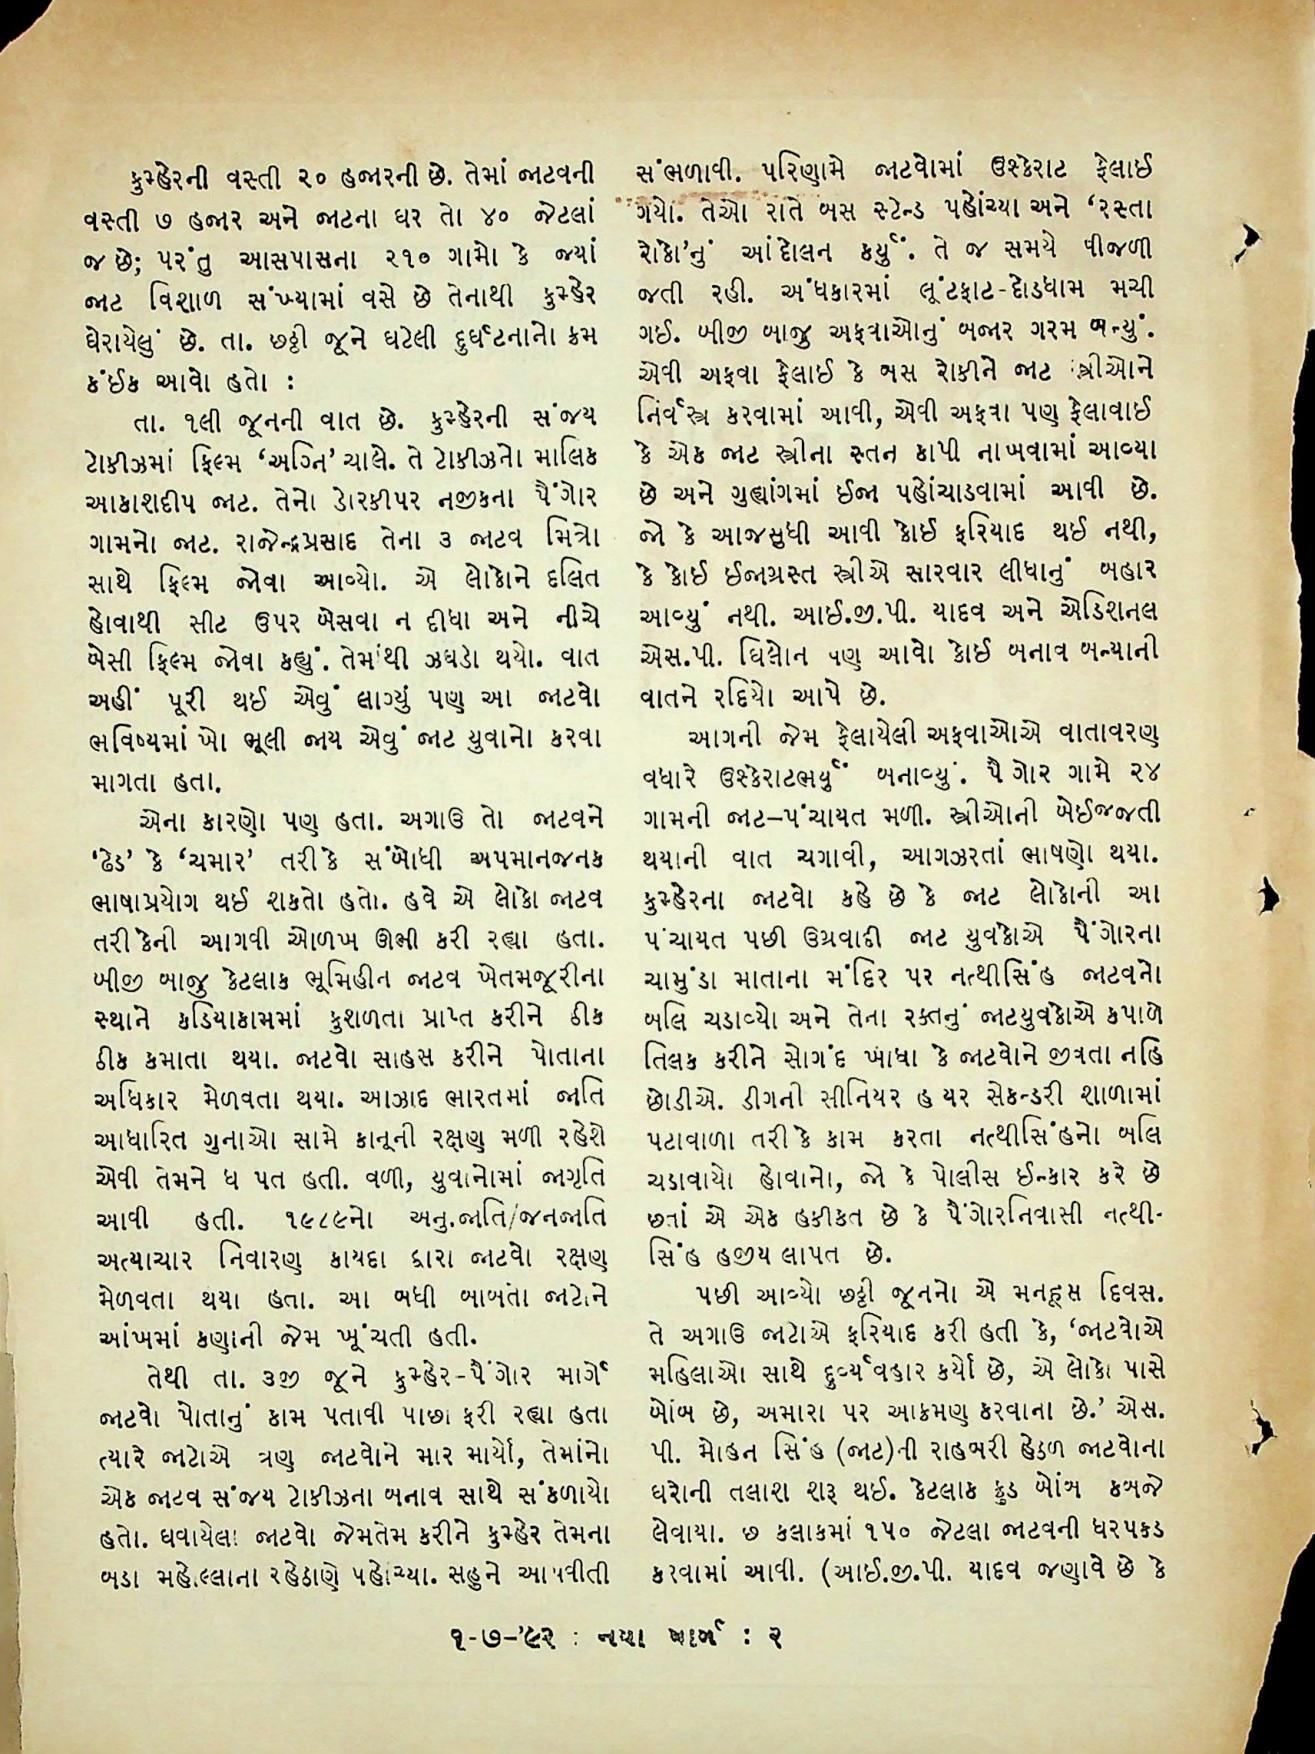 કુમ્હેરની વસ્તી ૨૦ હજારની છે. તેમાં જાટવની
વસ્તી ૭ હજાર અને જાટના ઘર તો ૪૦ જેટલાં
જ છે; પરંતુ આસપાસના ૨૧૦ ગામો કે જ્યાં
જાટ વિશાળ સંખ્યામાં વસે છે તેનાથી કુમ્હેર
ઘેરાયેલું છે. તા. છઠ્ઠી જૂને ઘટેલી દુર્ઘટનાનો ક્રમ
કંઈક આવો હતો :
તા. ૧લી જૂનની વાત છે. કુમ્હેરની સંજય
ટોકીઝમાં ફિલ્મ ‘અગ્નિ’ ચાલે. તે ટોકીઝનો માલિક
આકાશદીપ જાટ. તેનો ડોરકીપર નજીકના પૈંગોર
ગામનો જાટ. રાજેન્દ્રપ્રસાદ તેના ૩ જાટવ મિત્રો
સાથે ફિલ્મ જોવા આવ્યો. એ લોકોને દલિત
હોવાથી સીટ ઉપર બેસવા ન દીધા અને નીચે
બેસી ફિલ્મ જોવા કહ્યું. તેમાંથી ઝઘડો થયો. વાત
અહીં પૂરી થઈ એવું લાગ્યું પણ આ જાટવો
ભવિષ્યમાં ખો ભૂલી જાય એવું જાટ યુવાનો કરવા
માગતા હતા.
એના કારણો પણ હતા. અગાઉ તો જાટવને
‘ઢેડ’ કે ‘ચમાર’ તરીકે સંબોધી અપમાનજનક
ભાષાપ્રયોગ થઈ શકતો હતો. હવે એ લોકો જાટવ
તરીકેની આગવી ઓળખ ઊભી કરી રહ્યા હતા.
બીજી બાજુ કેટલાક ભૂમિહીન જાટવ ખેતમજૂરીના
સ્થાને કડિયાકામમાં કુશળતા પ્રાપ્ત કરીને ઠીક
ઠીક કમાતા થયા. જાટવો સાહસ કરીને પોતાના
અધિકાર મેળવતા થયા. આઝાદ ભારતમાં જાતિ
આધારિત ગુનાઓ સામે કાનૂની રક્ષણ મળી રહેશે
એવી તેમને ધ પત હતી. વળી, યુવાનોમાં જાગૃતિ
આવી હતી. ૧૯૮૯નો અનુ.જાતિ/જનજાતિ
અત્યાચાર નિવારણ કાયદા દ્વારા જાટવો રક્ષણ
મેળવતા થયા હતા. આ બધી બાબતો જાટોને
આંખમાં કણાની જેમ ખૂંચતી હતી.
તેથી તા. ૩જી જૂને કુમ્હેર-પૈંગોર માર્ગે
જાટવો પોતાનું કામ પતાવી પાછા ફરી રહ્યા હતા
ત્યારે જાટોએ ત્રણ જાટવોને માર માર્યો, તેમાંનો
એક જાટવ સંજય ટોકીઝના બનાવ સાથે સંકળાયો
હતો. ઘવાયેલા જાટવો જેમતેમ કરીને કુમ્હેર તેમના
બડા મહોલ્લાના રહેઠાણે પહોંચ્યા. સહુને આપવીતી
સંભળાવી. પરિણામે જાટવોમાં ઉશ્કેરાટ ફેલાઈ
ગયો. તેઓ રાતે બસ સ્ટેન્ડ પહોંચ્યા અને ‘રસ્તા
રોકો’નું આંદોલન કર્યું. તે જ સમયે વીજળી
જતી રહી. અંધકારમાં લૂંટફાટ-દોડધામ મચી
ગઈ. બીજી બાજુ અફવાઓનું બજાર ગરમ બન્યું.
એવી અફવા ફેલાઈ કે બસ રોકીને જાટ સ્ત્રીઓને
નિર્વસ્ત્ર કરવામાં આવી, એવી અફવા પણ ફેલાવાઈ
કે એક જાટ સ્ત્રીના સ્તન કાપી નાખવામાં આવ્યા
છે અને ગુહ્યાંગમાં ઈજા પહોંચાડવામાં આવી છે.
જો કે આજસુધી આવી કોઈ ફરિયાદ થઈ નથી,
કે કોઈ ઈજાગ્રસ્ત સ્ત્રીએ સારવાર લીધાનું બહાર
આવ્યું નથી. આઈ.જી.પી. યાદવ અને એડિશનલ
એસ.પી. ધિલોન પણ આવો કોઈ બનાવ બન્યાની
વાતને રદિયો આપે છે.
આગની જેમ ફેલાયેલી અફવાઓએ વાતાવરણ
વધારે ઉશ્કેરાટભર્યું બનાવ્યું. પૈંગોર ગામે ૨૪
ગામની જાટ–પંચાયત મળી. સ્ત્રીઓની બેઈજ્જતી
થયાની વાત ચગાવી, આગઝરતાં ભાષણો થયા.
કુમ્હેરના જાટવો કહે છે કે જાટ લોકોની આ
પંચાયત પછી ઉગ્રવાદી જાટ યુવકોએ પૈંગોરના
ચામુંડા માતાના મંદિર પર નત્થીસિંહ જાટવનો
બલિ ચડાવ્યો અને તેના રક્તનું જાટયુવકોએ કપાળે
તિલક કરીને સોગંદ ખાધા કે જાટવોને જીવતા નહિ
છોડીએ. ડીગની સીનિયર હ યર સેકન્ડરી શાળામાં
પટાવાળા તરીકે કામ કરતા નત્થીસિંહનો બલિ
ચડાવાયો હોવાનો, જો કે પોલીસ ઈન્કાર કરે છે
છતાં એ એક હકીકત છે કે પૈંગોરનિવાસી નત્થી-
સિંહ હજીય લાપત છે.
પછી આવ્યો છઠ્ઠી જૂનનો એ મનહૂસ દિવસ.
તે અગાઉ જાટોએ ફરિયાદ કરી હતી કે, ‘જાટવોએ
મહિલાઓ સાથે દુર્વ્યવહાર કર્યો છે, એ લોકો પાસે
બોંબ છે, અમારા પર આક્રમણ કરવાના છે.’ એસ.
પી. મોહન સિંહ (જાટ)ની રાહબરી હેઠળ જાટવોના
ઘરોની તલાશ શરૂ થઈ. કેટલાક ક્રુડ બોંબ કબજે
લેવાયા. છ કલાકમાં ૧૫૦ જેટલા જાટવની ધરપકડ
કરવામાં આવી. (આઈ.જી.પી. યાદવ જણાવે છે કે
૧-૭-’૯૨ : નયા માર્ગ : ૨